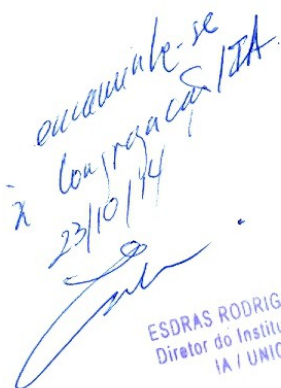 encaminhe-se
à Congregação/IA.
23/10/14
ESDRAS RODRIG
Diretor do Institu
IA / UNIC